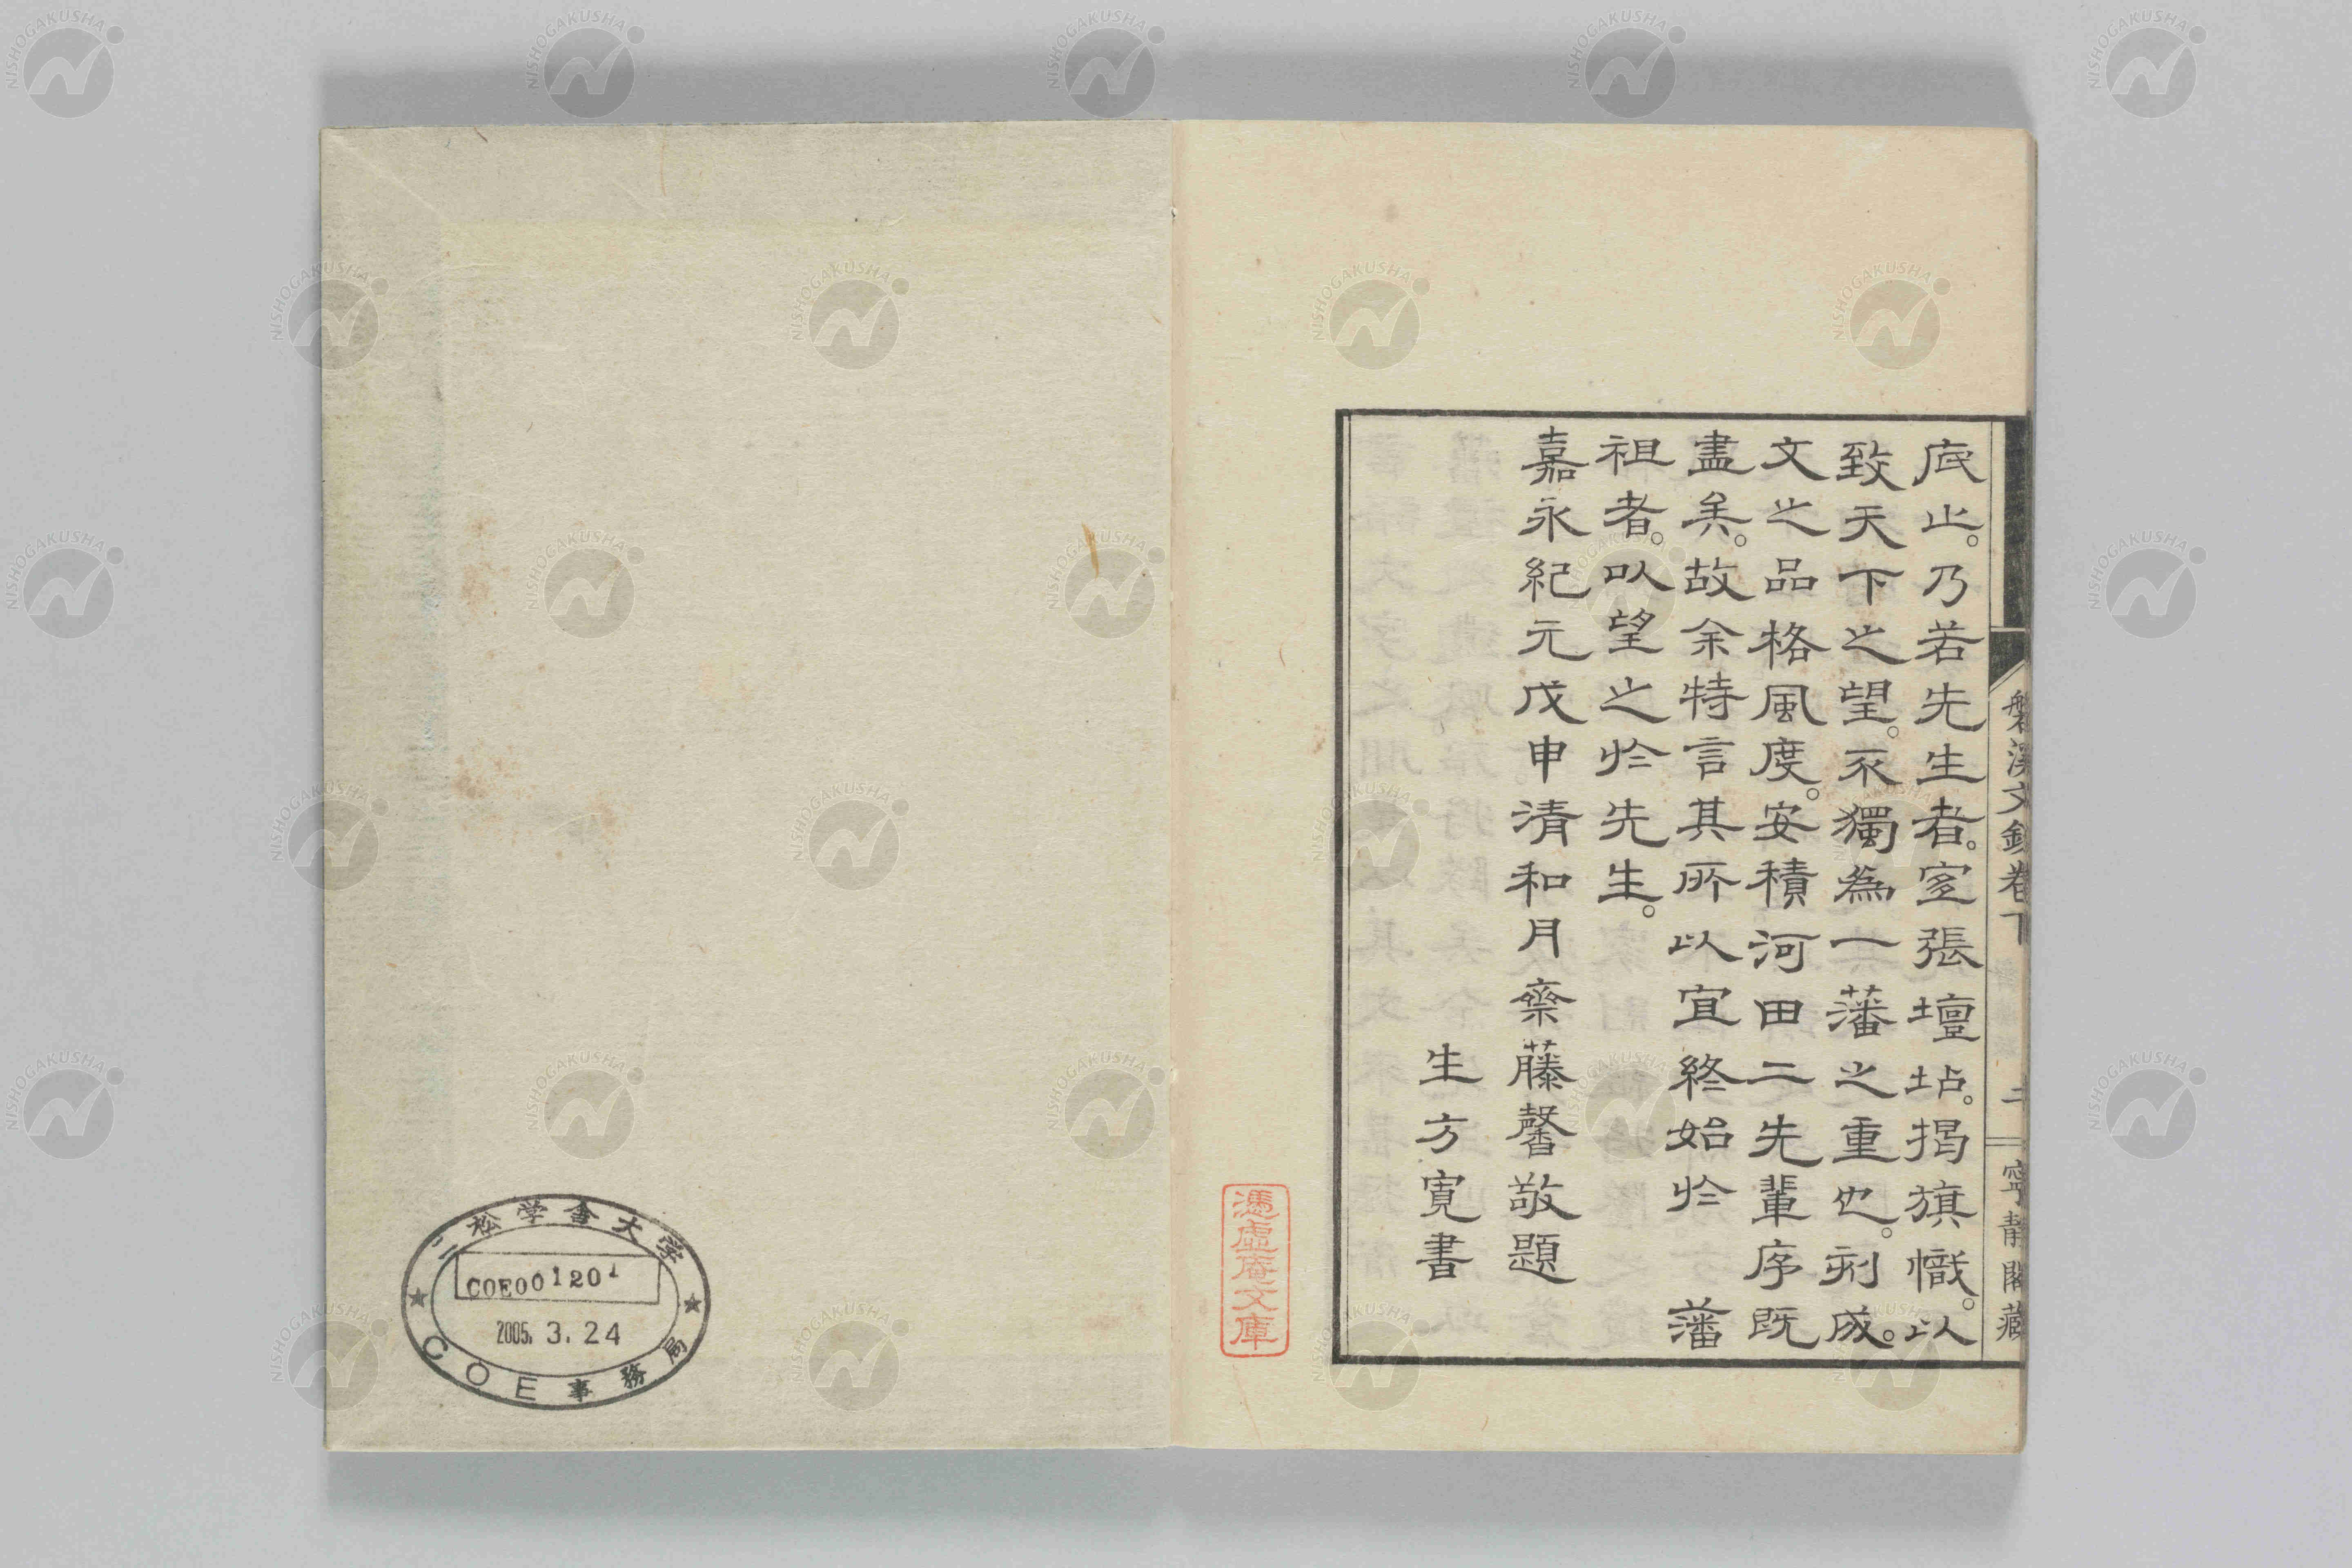 底止。乃若先生者。宜張壇坫。掲旗幟。以
致天下之望。不獨為一藩之重也。刻成。
文之品格風度。安積河田二先輩序既
盡矣。故余特言其所以宜終始於藩
祖者。以望之於先生。
嘉永紀元戊申清和月齋藤馨敬題
生方寛書
磐溪文鈔卷下
二
寧靜閣藏
憑虛庵文庫
二松学舎大学
COE001201
2005. 3. 24
COE事務局
NISHOGAKUSHA